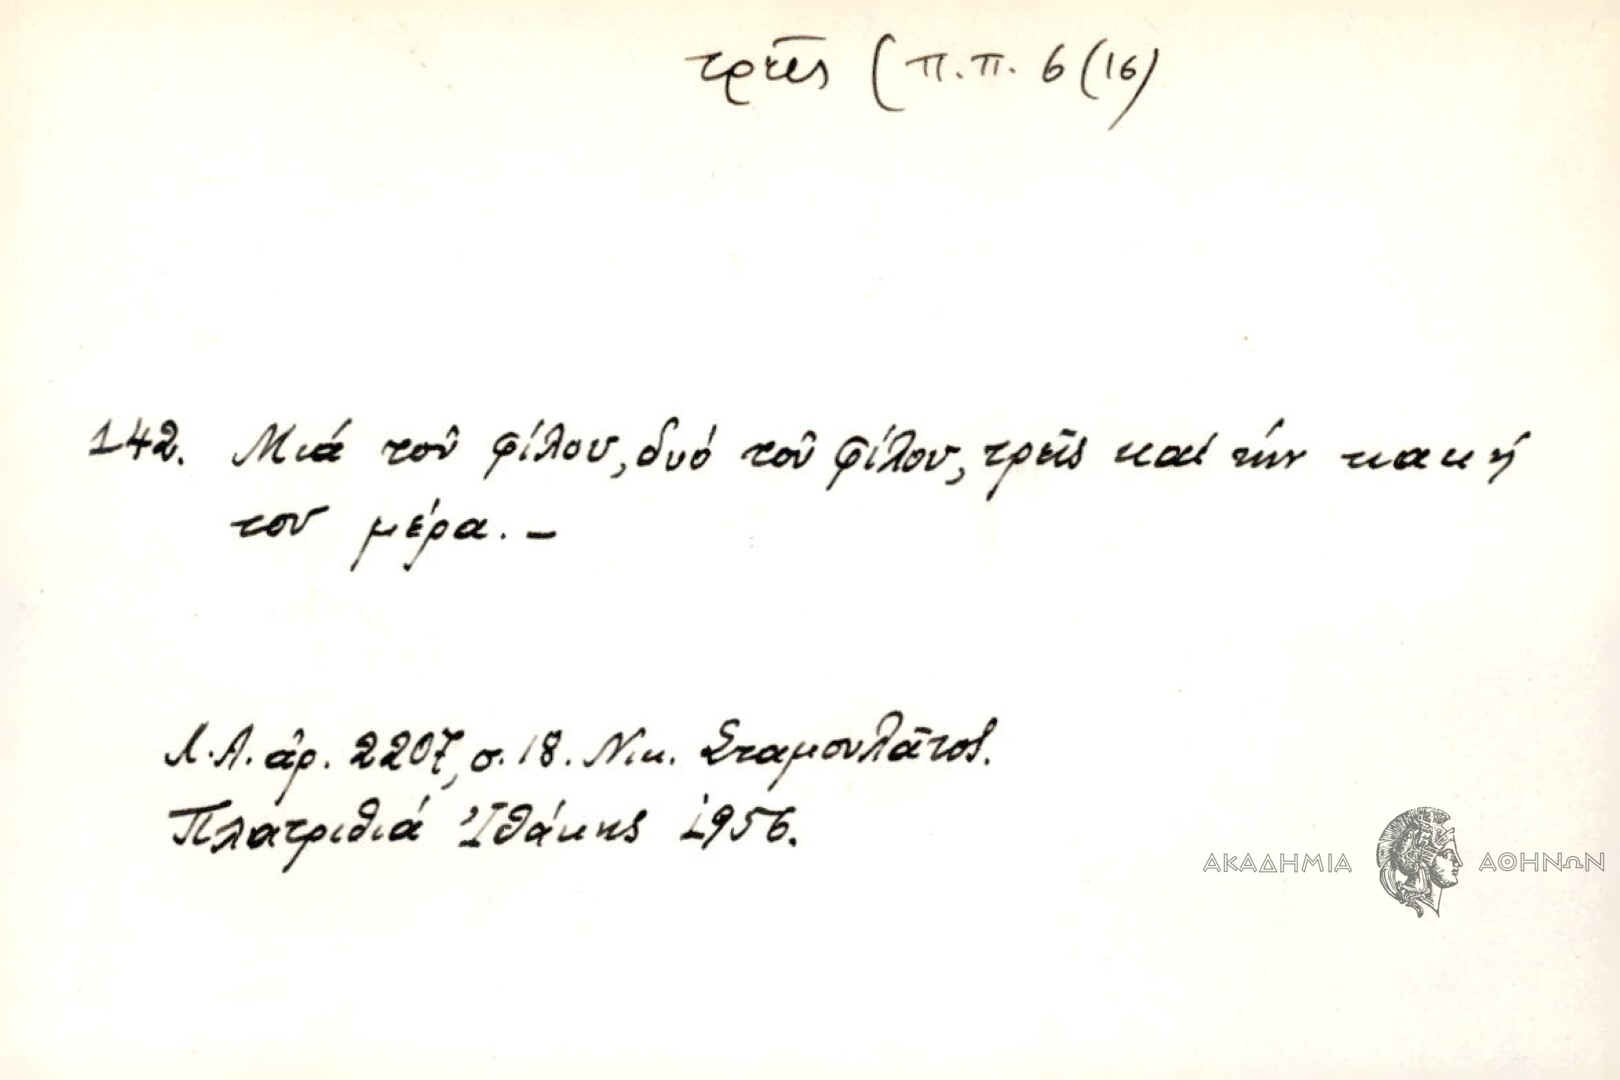 τρεῖς (Π.Π. 6(16)
142. Μιά τοῦ φίλου, δυό τοῦ φίλου, τρεῖς καί τήν κακή
του μέρα. –
Λ.Α. ἀρ. 2207, σ. 18. Νικ. Σταμουλᾶτος.
Πλατριθιά Ἰθάκης 1956.
ΑΚΑΔΗΜΙΑ ΑΘΗΝΩΝ